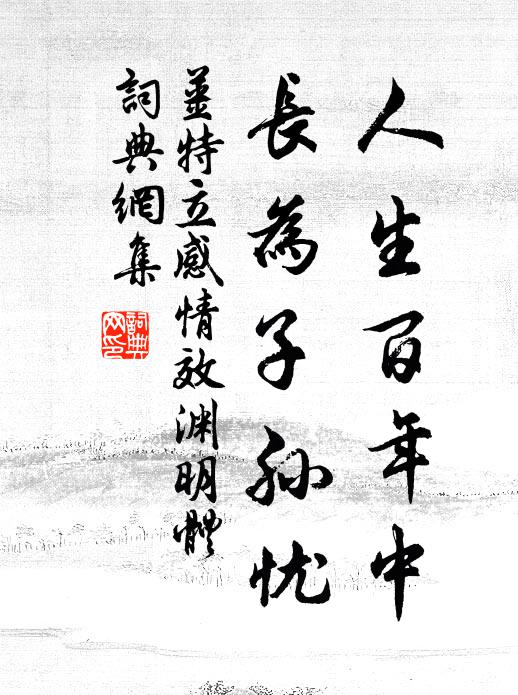 人生百年中
長為子孫忧
姜特立感情效渊明體
詞典網集
詞典网印